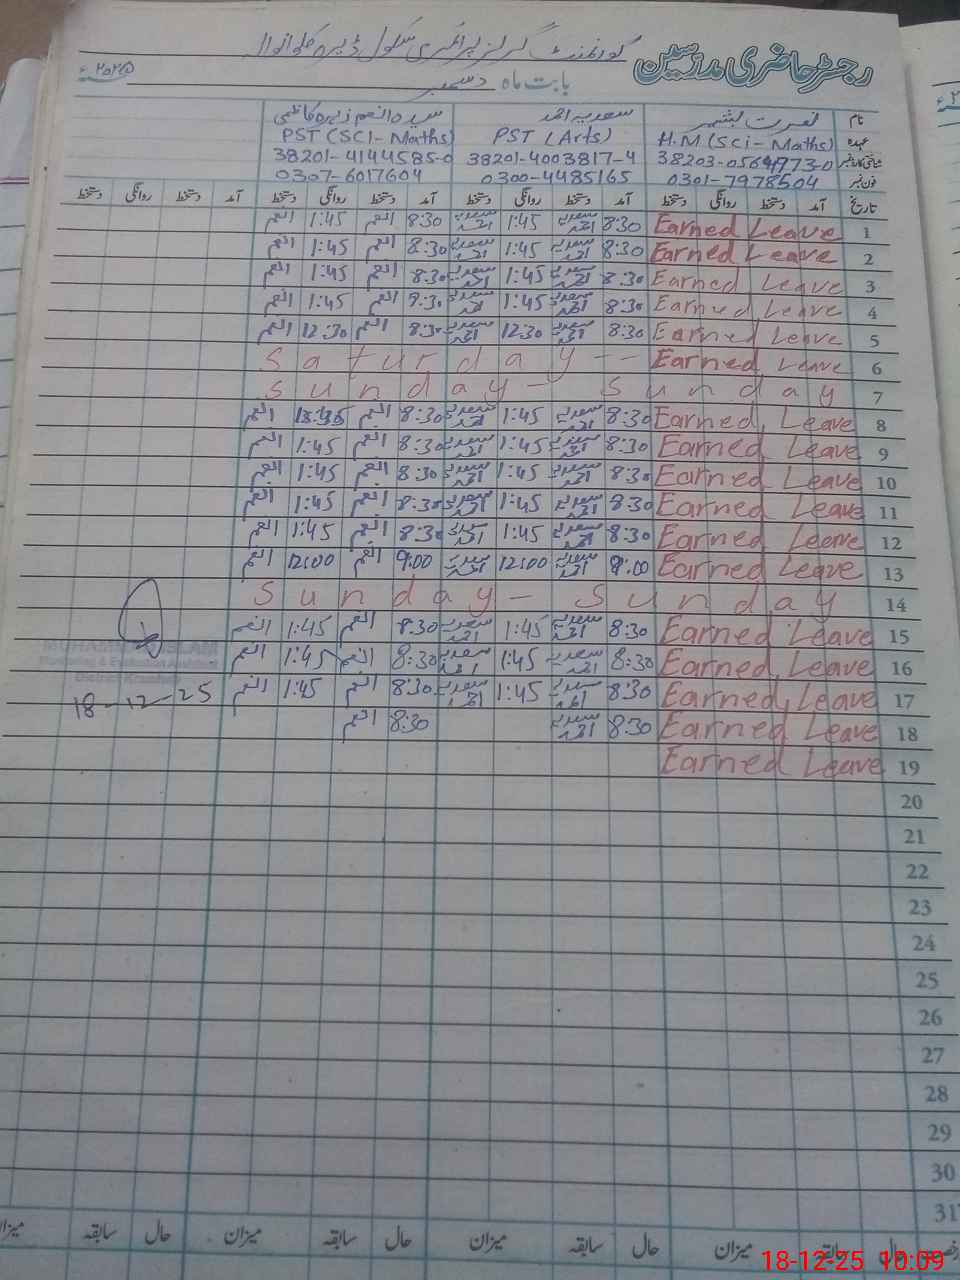 رجسٹر حاضری مدرسین گورنمنٹ گرلز پرائمری سکول ڈیرہ
بابت ماہ دسمبر ۲۰۲۵ء
نام نصرت سعدیہ احمد سیدہ انعم زہرہ کاظمی
عہدہ H.M (Sci - Maths) PST (Arts) PST (SCI - Maths)
شناختی کارڈ نمبر 38203-0564973-0 38201-4003817-4 38201-4144585-0
فون نمبر 0301-7978504 0300-4485165 0307-6017604
تاریخ آمد دستخط روانگی دستخط آمد دستخط روانگی دستخط آمد دستخط روانگی دستخط آمد دستخط روانگی دستخط
1 Earned Leave 8:30 سعدیہ احمد 1:45 سعدیہ احمد 8:30 انعم 1:45 انعم
2 Earned Leave 8:30 سعدیہ احمد 1:45 سعدیہ احمد 8:30 انعم 1:45 انعم
3 Earned Leave 8:30 سعدیہ احمد 1:45 سعدیہ احمد 8:30 انعم 1:45 انعم
4 Earned Leave 8:30 سعدیہ احمد 1:45 سعدیہ احمد انعم 1:45 انعم
5 Earned Leave 8:30 سعدیہ احمد 12:30 سعدیہ احمد 8:30 انعم 12:30 انعم
6 Earned Leave Saturday --
7 Sunday - Sunday
8 Earned Leave 8:30 سعدیہ احمد 1:45 سعدیہ احمد 8:30 انعم انعم
9 Earned Leave 8:30 سعدیہ احمد 1:45 سعدیہ احمد 8:30 انعم 1:45 انعم
10 Earned Leave 8:30 سعدیہ احمد 1:45 سعدیہ احمد 8:30 انعم 1:45 انعم
11 Earned Leave 8:30 سعدیہ احمد 1:45 سعدیہ احمد 8:30 انعم 1:45 انعم
12 Earned Leave 8:30 سعدیہ احمد 1:45 سعدیہ احمد 8:30 انعم 1:45 انعم
13 Earned Leave 9:00 سعدیہ احمد 12:00 سعدیہ احمد 9:00 انعم 12:00 انعم
14 Sunday - Sunday
15 Earned Leave 8:30 سعدیہ احمد 1:45 سعدیہ احمد 8:30 انعم 1:45 انعم
16 Earned Leave 8:30 سعدیہ احمد 1:45 سعدیہ احمد 8:30 انعم 1:45 انعم
17 Earned Leave 8:30 سعدیہ احمد 1:45 سعدیہ احمد 8:30 انعم 1:45 انعم
18 Earned Leave 8:30 سعدیہ احمد 8:30 انعم
19 Earned Leave
MUHAMMAD ISLAM
Monitoring & Evaluation Assistant
District Khushab
18-12-25
20
21
22
23
24
25
26
27
28
29
30
31
حال سابقہ میزان حال سابقہ میزان حال سابقہ میزان حال سابقہ میزان
18-12-25 10:09